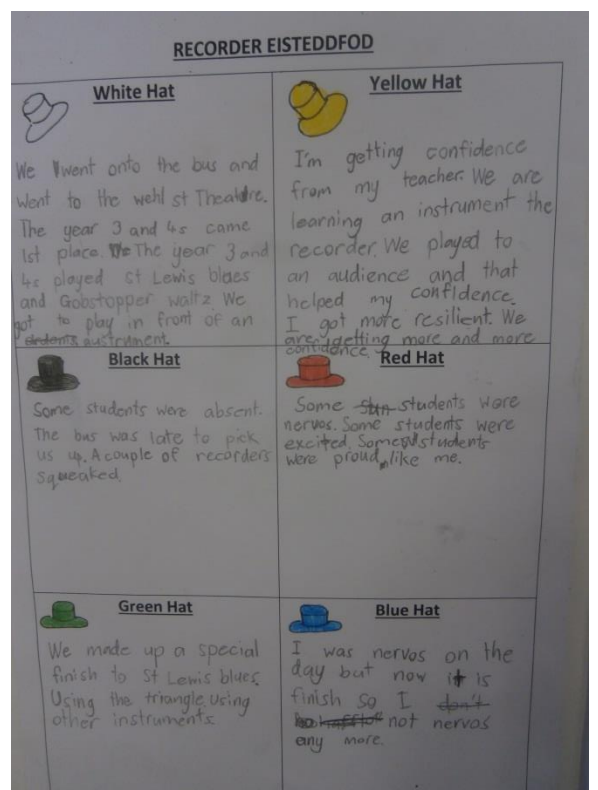 RECORDER EISTEDDFOD
White Hat
We went onto the bus and
went to the wehl st Theatre.
The year 3 and 4s came
1st place. The year 3 and
4s played St Lewis blues
and Gobstopper waltz. We
got to play in front of an
austrument.
Yellow Hat
I'm getting confidence
from my teacher. We are
learning an instrument the
recorder. We played to
an audience and that
helped my confidence.
I got more resilient. We
are getting more and more
confidence.
Black Hat
Some students were absent.
The bus was late to pick
us up. A couple of recorders
squeaked.
Red Hat
Some students were
nervos. Some students were
excited. Some students
were proud, like me.
Green Hat
We made up a special
finish to St Lewis blues.
Using the triangle, using
other instruments.
Blue Hat
I was nervos on the
day but now it is
finish so I don't
not nervos
any more.